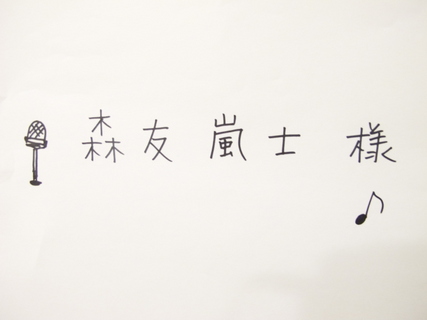 森友嵐士 様